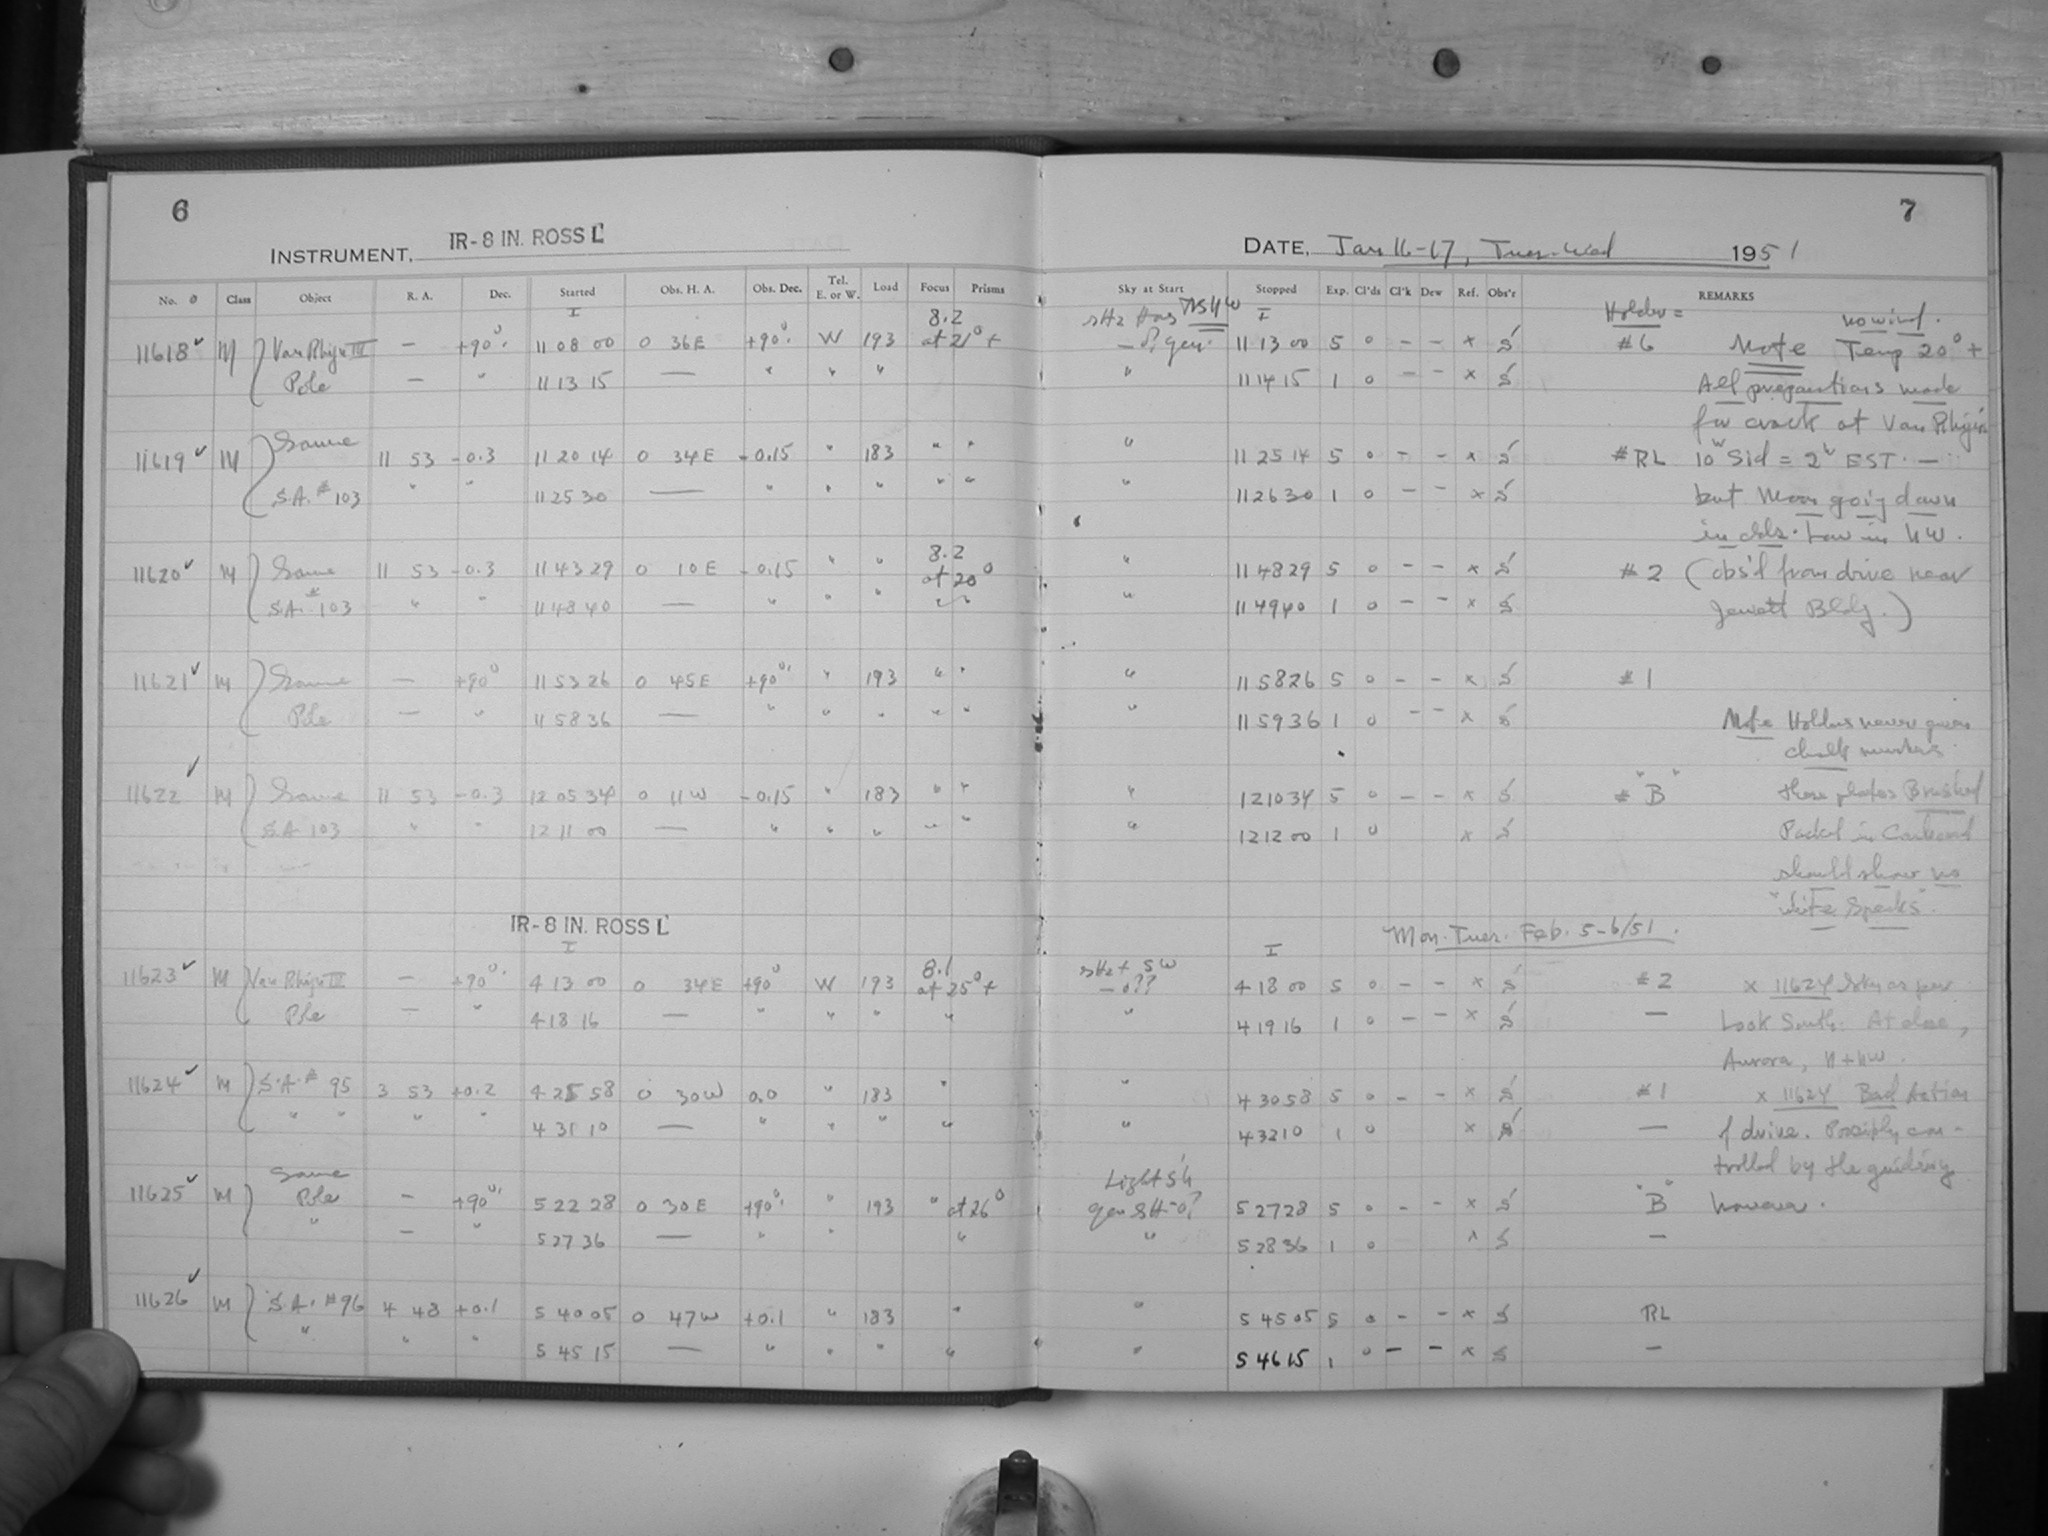 6
INSTRUMENT, IR-8 IN. ROSS L
No. Class Object R. A. Dec. Started Obs. H. A. Obs. Dec. Tel. E. or W. Load Focus Prisms
I 8.2
11618 M Van Rhijn III — +90° 11 08 00 0 36E +90° W 193 at 21°+
Pole — " 11 13 15 — " " "
11619 M Same 11 53 -0.3 11 20 14 0 34E -0.15 " 183 " "
S.A. # 103 " " 11 25 30 — " " " " "
8.2
11620 M Same 11 53 -0.3 11 43 29 0 10E -0.15 " " at 20°
S.A. # 103 " " 11 48 40 — " " " " "
11621 M Same — +90° 11 53 26 0 45E +90° " 193 " "
Pole — " 11 58 36 — " " " " "
11622 M Same 11 53 -0.3 12 05 34 0 11W -0.15 " 183 " "
S.A 103 " " 12 11 00 — " " " " "
IR-8 IN. ROSS L
I 8.1
11623 M Van Rhijn III — +90° 4 13 00 0 34E +90° W 193 at 25°+
Pole — " 4 18 16 — " " " "
11624 M S.A. # 95 3 53 +0.2 4 25 58 0 30W 0.0 " 183 "
" " " " 4 31 10 — " " " "
Same
11625 M Pole — +90° 5 22 28 0 30E +90° " 193 " at 26°
" — " 5 27 36 — " " "
11626 M S.A. #96 4 48 +0.1 5 40 05 0 47W +0.1 " 183 "
" " " 5 45 15 — " " " "
7
DATE, Jan 16-17, Tues-Wed 1951
Sky at Start Stopped Exp. Cl'ds Cl'k Dew Ref. Obs'r REMARKS
I Holder = no wind.
11 13 00 5 0 — — x S #6 Note Temp 20°+
" 11 14 15 1 0 — — x S All preparations made
for crack at Van Rhijn
" 11 25 14 5 0 — — x S #RL 10 Sid = 2 EST. —
" 11 26 30 1 0 — — x S but Moon going down
in clds. Low in NW.
" 11 48 29 5 0 — — x S #2 (obs'd from drive near
" 11 49 40 1 0 — — x S Jewett Bldg.)
" 11 58 26 5 0 — — x S #1
" 11 59 36 1 0 — — x S Note Holders never given
chalk numbers.
" 12 10 34 5 0 — — x S # "B" these plates Brushed
" 12 12 00 1 0 x S Packed in Cardboard
should show no
"white Specks".
Mon. Tues. Feb. 5-6/51.
I
4 18 00 5 0 — — x S #2 x 11624 Sky as per
" 4 19 16 1 0 — — x S — Look South. At close,
Aurora, N + NW.
" 4 30 58 5 0 — — x S #1 x 11624 Bad Action
" 4 32 10 1 0 x S — of drive. Possibly con-
trolled by the guiding
however.
Light S'h
5 27 28 5 0 — — x S "B"
" 5 28 36 1 0 x S —
" 5 45 05 5 0 — — x S RL
" 5 46 15 1 0 — — x S —